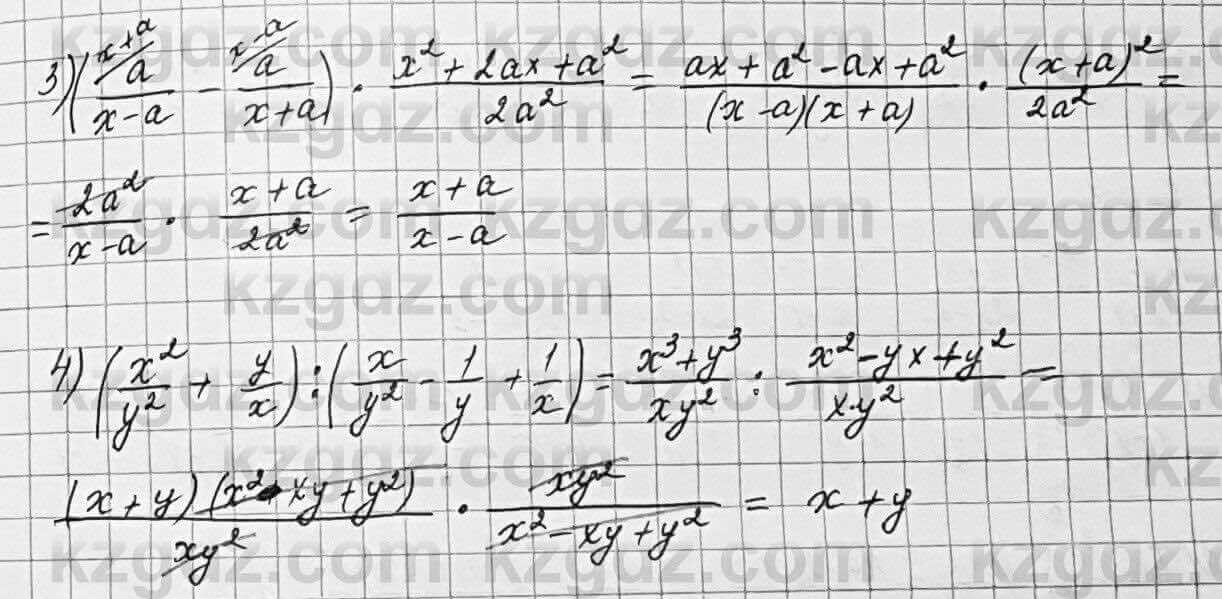 3) ((x+a)/ a/(x-a) - (x-a)/ a/(x+a)) · (x²+2ax+a²)/(2a²) = (ax+a²-ax+a²)/((x-a)(x+a)) · (x+a)²/(2a²) =
= 2a²/(x-a) · (x+a)/(2a²) = (x+a)/(x-a)
4) (x²/y² + y/x) : (x/y² - 1/y + 1/x) = (x³+y³)/(xy²) : (x²-yx+y²)/(x·y²) =
(x+y)(x²-xy+y²)/(xy²) · xy²/(x²-xy+y²) = x+y
kzgdz.com